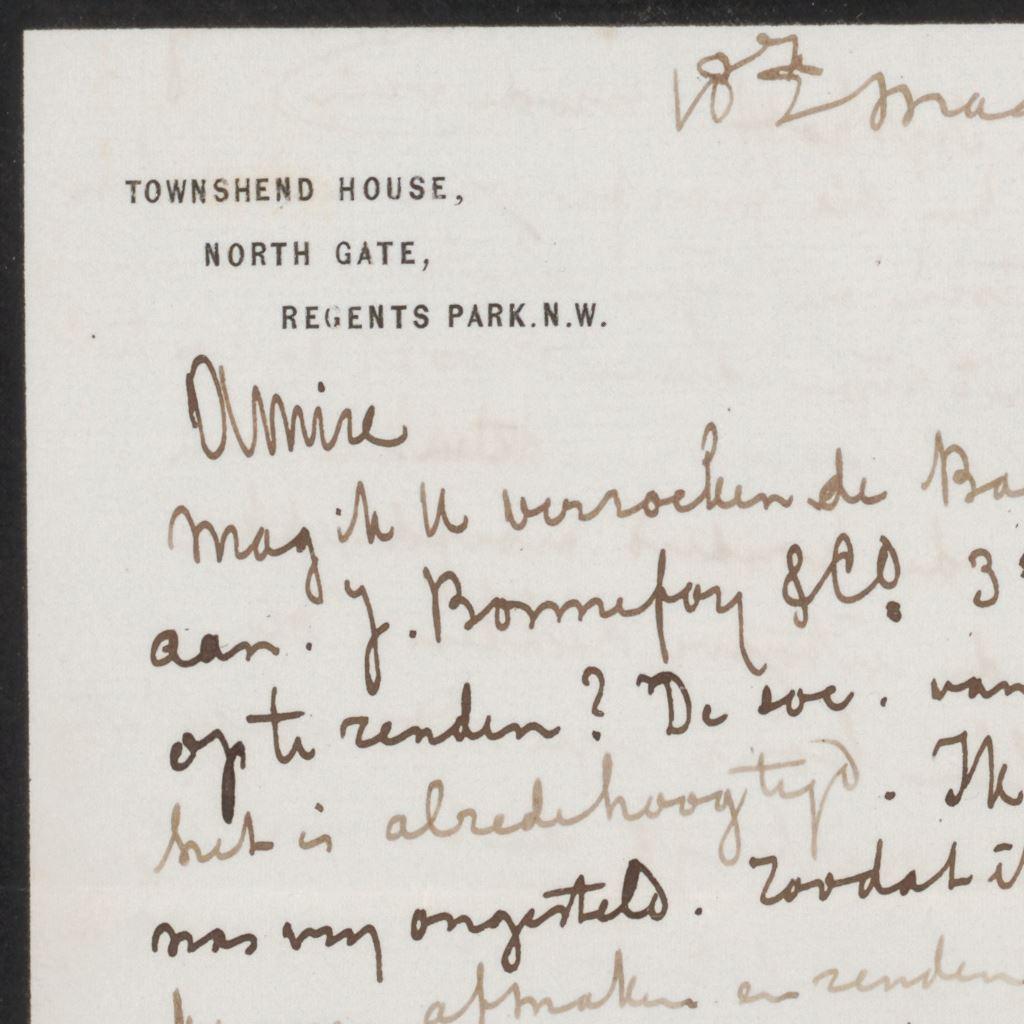 Maa
TOWNSHEND HOUSE,
NORTH GATE,
REGENTS PARK.N.W.
Amice
Mag ik U verzoeken de Ba
aan. J. Bonnefoy & Co. 3
op te zenden? De soc. van
het is alredehoogtijd. Ik
was ongesteld. Zoodat ik
afmaken en zenden